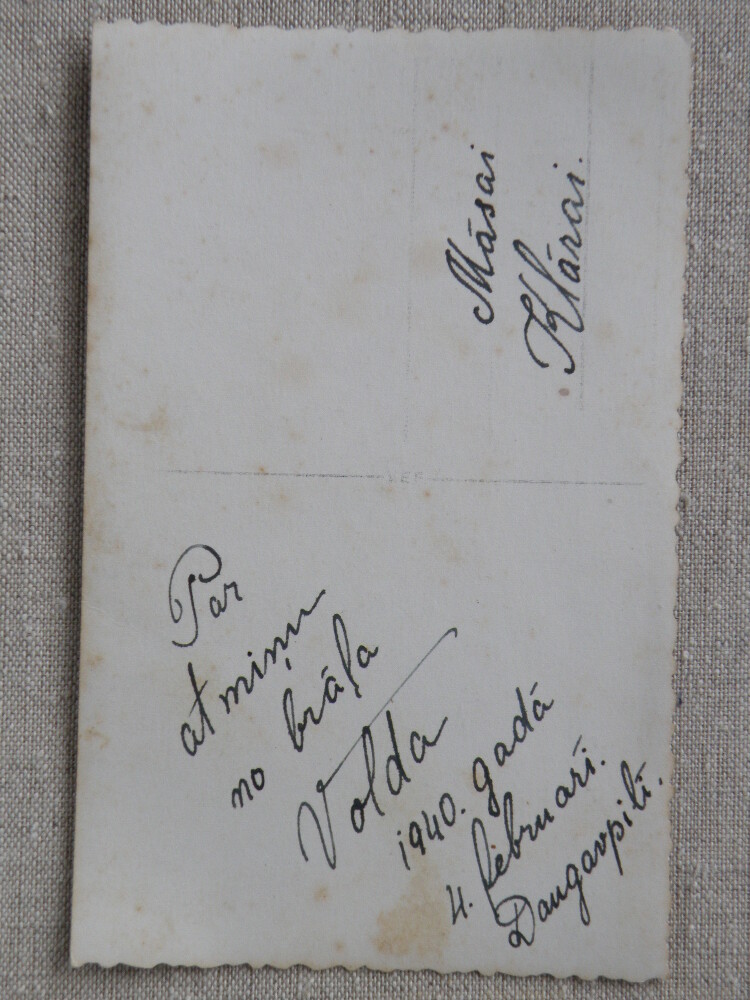 Māsai
Klārai.
Par
atmiņu
no brāļa
Volda
1940. gadā
4. februarī.
Daugavpilī.